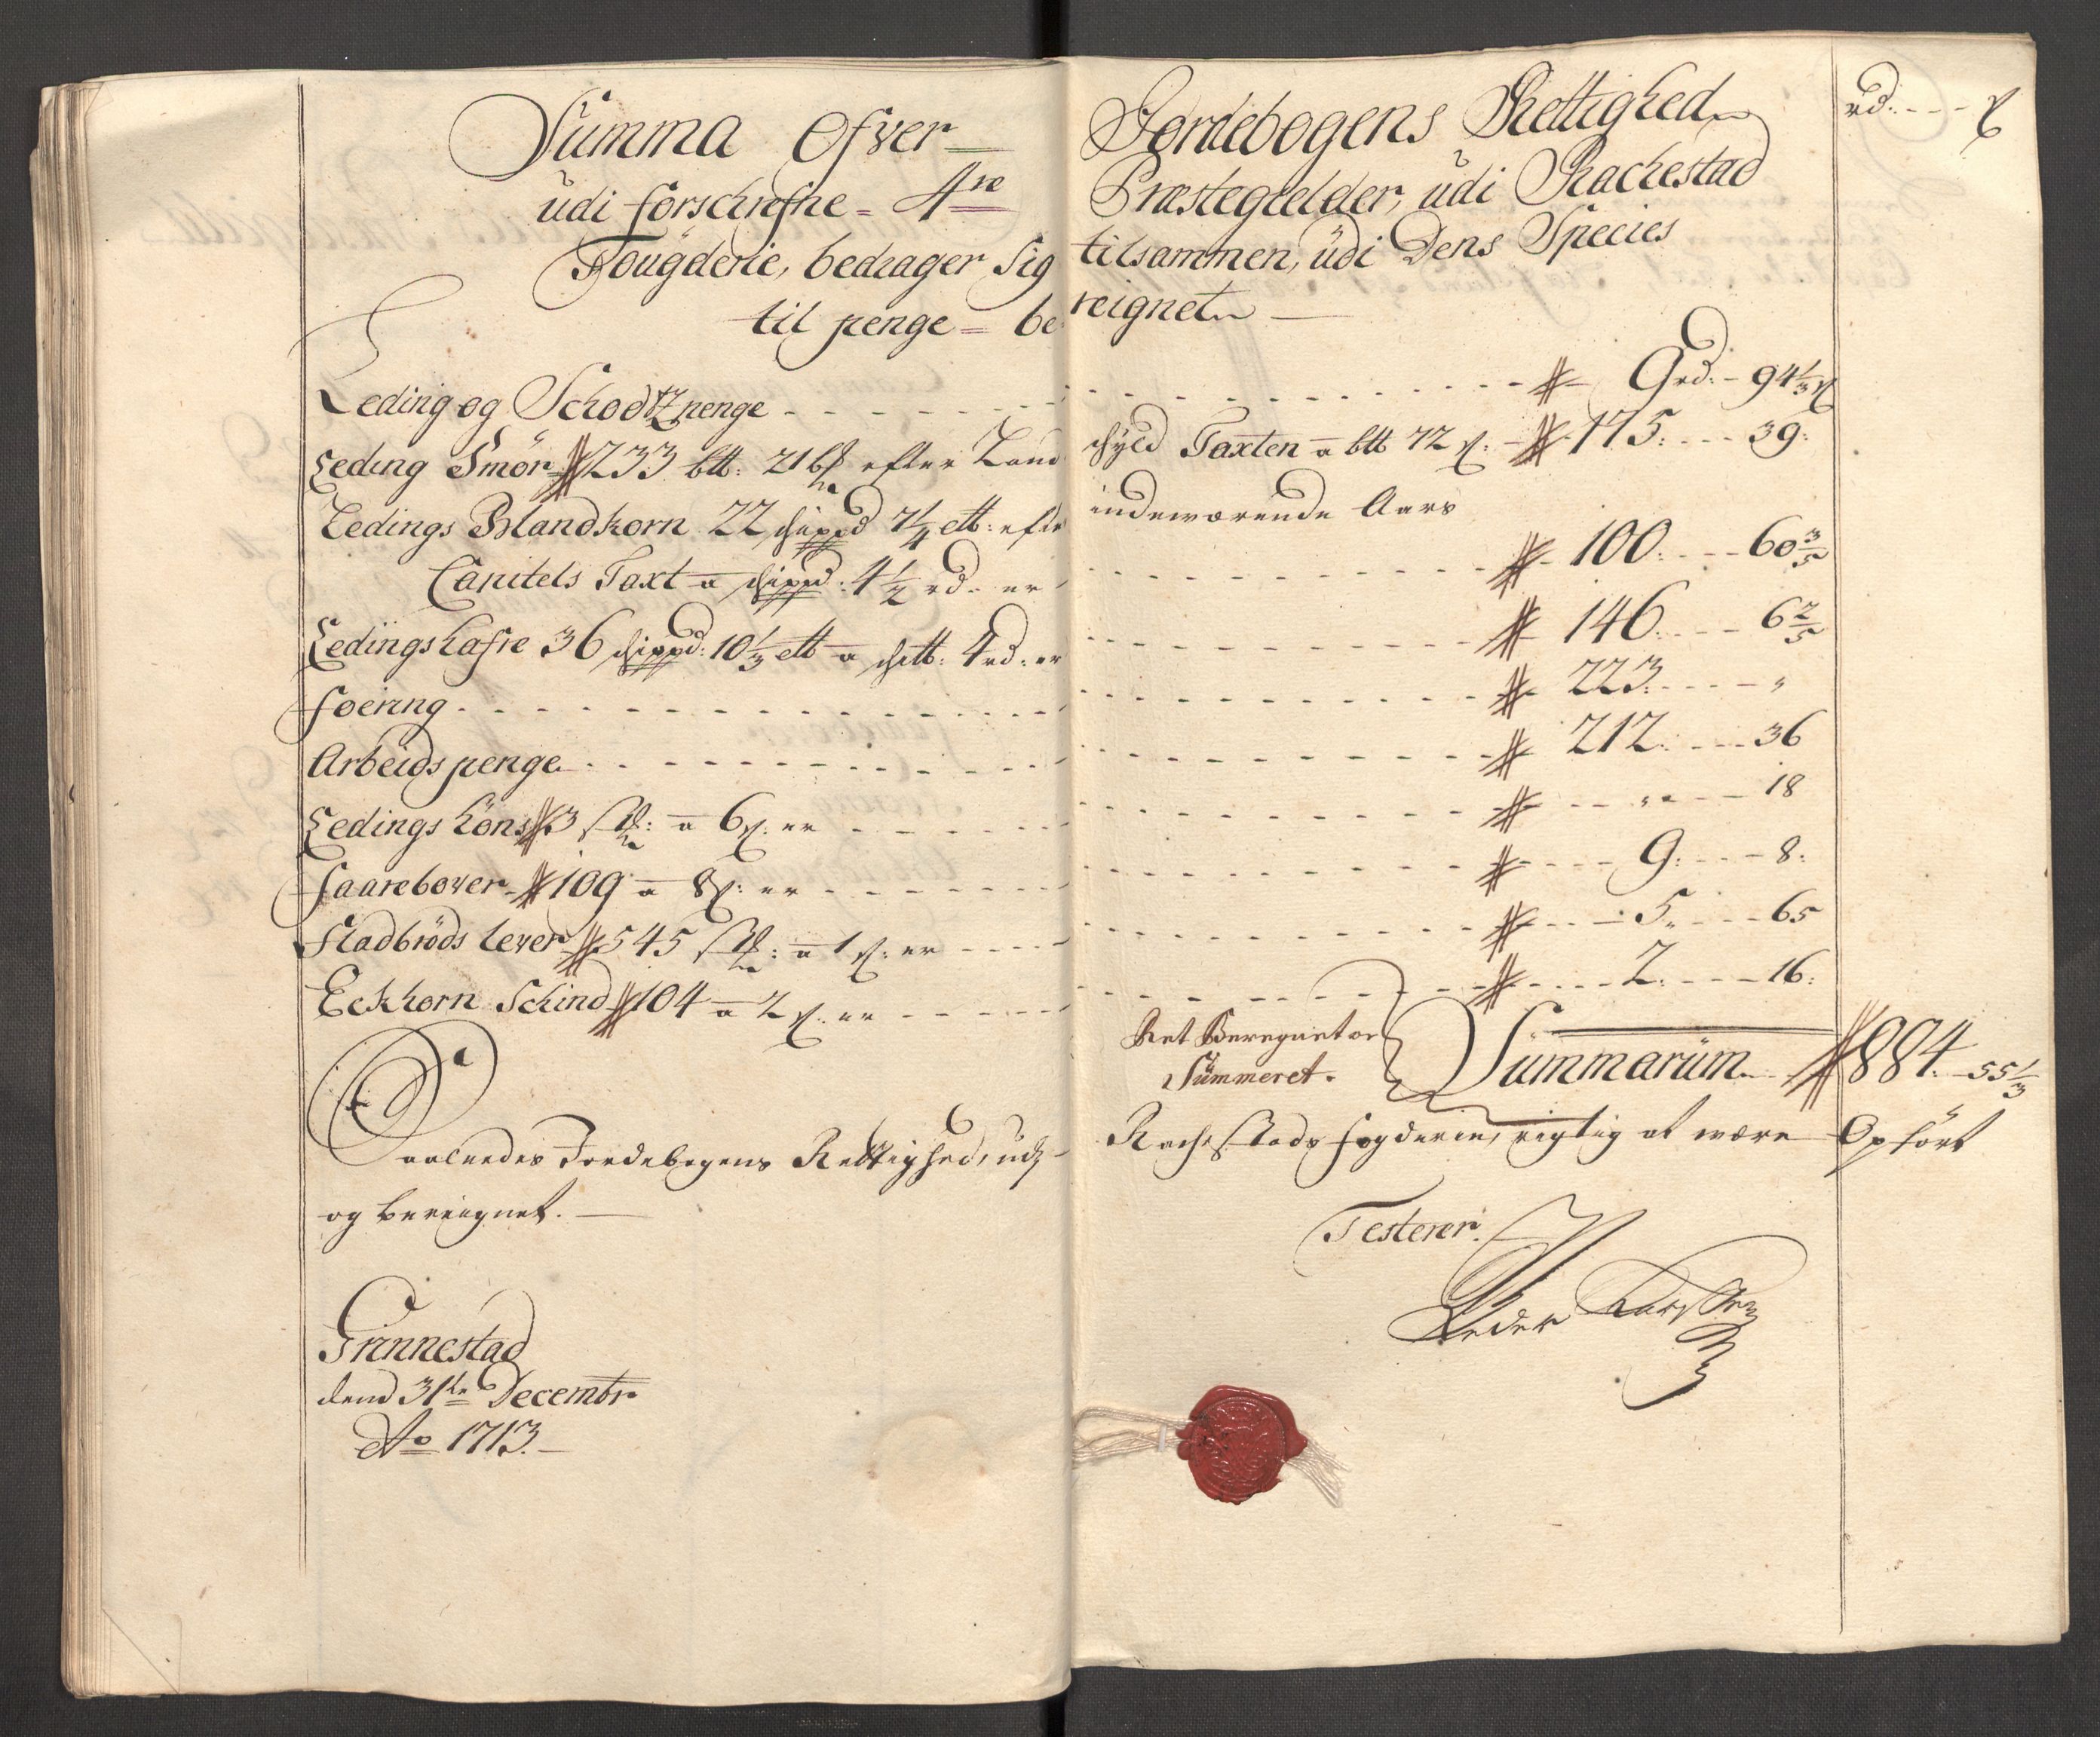 Summa Ofver Jordebogens Rettighed
rd: ß
udi forschrefne 4re Præstegielder, udi Rackestad
Fougderie, bedrager sig tilsammen, udi Dens Species
til penge be reignet
Leding og Schodtz penge # 9 rd: 94 1/3 ß
Leding Smør # 233 btt: 21 efter Land schyld Taxten a btt 72 ß: # 175: 39:
Ledings Blandkorn 22 schippd 7 1/4 ett: efter indeværende Aars
Capitels Taxt a schippd: 4 1/2 rd: er # 100: 60 3/5
Ledings hafre 36 schippd: 10 1/3 ett a schtt: 4 rd: er # 146: 6 2/5
foering # 223: "
Arbeids penge # 212: 36
Ledings høns # 3 stk: a 6 ß: er # " 18
faarebover # 109 a 8 ß: er # 9: 8:
Fladbrøds lever # 545 stk: a 1 ß: er # 5 " 65
Eckhorn Schind # 104 a 2 ß: er # 2: 16:
Ret Beregnet oc
Summeret.
Summarum # 884: 55 1/3
Saaledes Jordebogens Rettighed, udj Rachestads fogderie, rigtig at være Opført
og bereignet.
Testerer.
Peder Karsten
Grinnestad
dend 31te Decembr
Ao 1713.